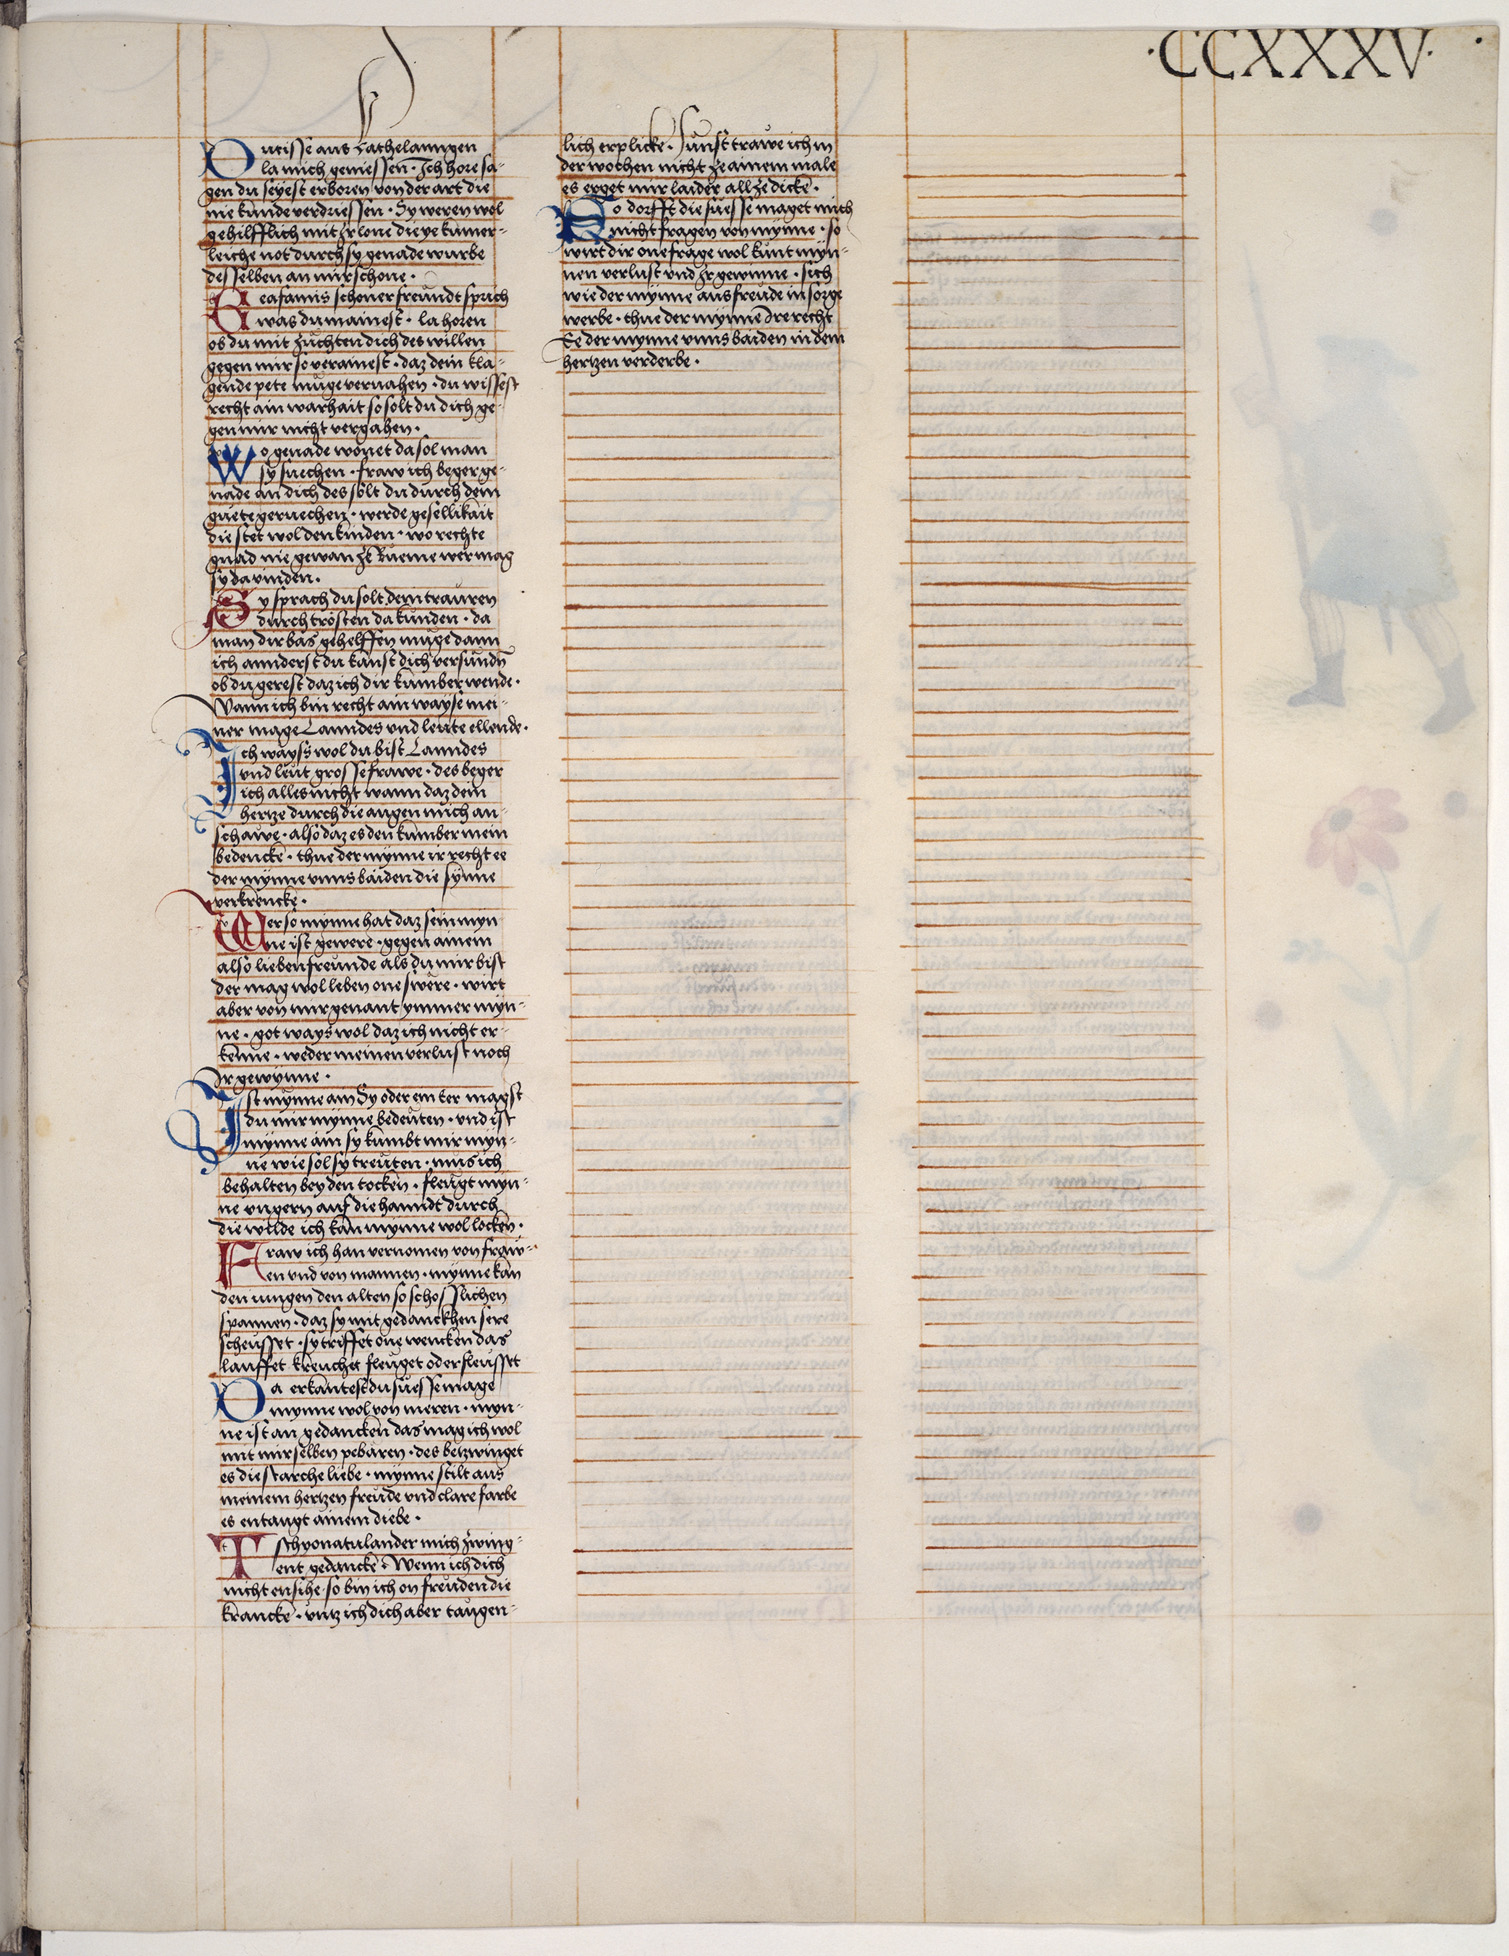 ·CCXXXV·
Dutisse aus Kathelanngen
la mich geniessen · Ich hore sa-
gen du seyest erboren von der art die
nie kunde verdriessen · Sy weren wol
gehilfflich mit Ir lone die ye kumer-
leiche not durch sy genade wurbe
desselben an mir schone ·
Beafamis schoner freundt sprich
was du mainest · la horen
ob du mit zuchten dich des willen
gegen mir so verainest · daz dein kla-
gende pete muge vervahen · du wissest
recht ain warhait so solt du dich ge-
gen mir nicht vergahen ·
Wo genade wonet da sol man
sy suechen · fraw ich beger ge-
nade an dich des solt du durch dein
guete geruechen · werde gesellikait
die stet wol den kinden · wo rechte
gnad nie gewan ze Rueme wer mag
sy da vinden ·
Sy sprach du solt dein trauren
durch trosten da kunden · da
man dir bas gehelffen muge dann
ich annderst du kanst dich versundn̄
ob du gerest daz ich dir kumber wende ·
Wann ich bin recht ain wayse mei-
ner mage Lanndes vnd leute ellende ·
Ich wayss wol du bist Lanndes
vnd leut grosse frawe · des beger
ich alles nicht wann daz dein
hertze durch die augen mich an-
schawe · also daz es den kumber mein
bedencke · thue der mynne ir recht ee
der mynne vnns baiden die synne
verkrencke ·
Wer so mynne hat daz sein myn
ne ist gewere · gegen ainem
also lieben freunde als du mir bist
der mag wol leben one swere · wirt
aber von mir genant ymmer myn-
ne · got ways wol daz ich nicht er-
kenne · weder meinen verlust noch
Ir gewynne ·
Ist mynne ain Sy oder ein Er magst
du mir mynne bedeuten · vnd ist
mynne ain sy kumbt mir myn-
ne wie sol sy treuten · mus ich
behalten bey den tocken · fleugt myn-
ne vngern auf die hanndt durch
die wilde ich kan mynne wol locken ·
Fraw ich han vernomen von fraw-
en vnd von mannen · mynne kan
den jungen den alten so schosslichen
spannen · daz sy mit gedanckhen sere
scheusset · sy triffet one wencken das
lauffet kreuchet fleuget oder fleusset
Da erkantest du suesse mage
mynne wol von meren · myn-
ne ist an gedancken das mag ich wol
mit mir selben pebaren · des betzwinget
es die starche liebe · mynne stilt aus
meinem hertzen freude vnd clare farbe
es entaugt ainem diebe ·
Tschyonatulander mich zwing-
ent gedancke · Wenn ich dich
nicht ensihe so bin ich on freuden die
krancke · vntz ich dich aber taugen-
lich erplicke · Sunst trawe ich in
der wochen nicht ze ainem male
es erget mir laider all ze dicke ·
So dorfft die suesse maget mich
nicht fragen von mynne · so
wirt dir one frage wol kunt myn-
nen verlust vnd Ir gewinne · sich
wie der mynne aus freude in sorge
werbe · thue der mynne Ire recht
Ee der mynne vnns baiden in dem
hertzen verderbe ·